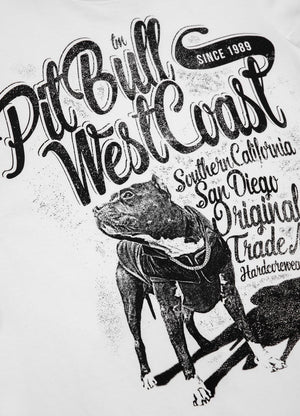 Pit Bull tm
SINCE 1989
West Coast
Southern California
San Diego
Original
Trade
Hardcorewear